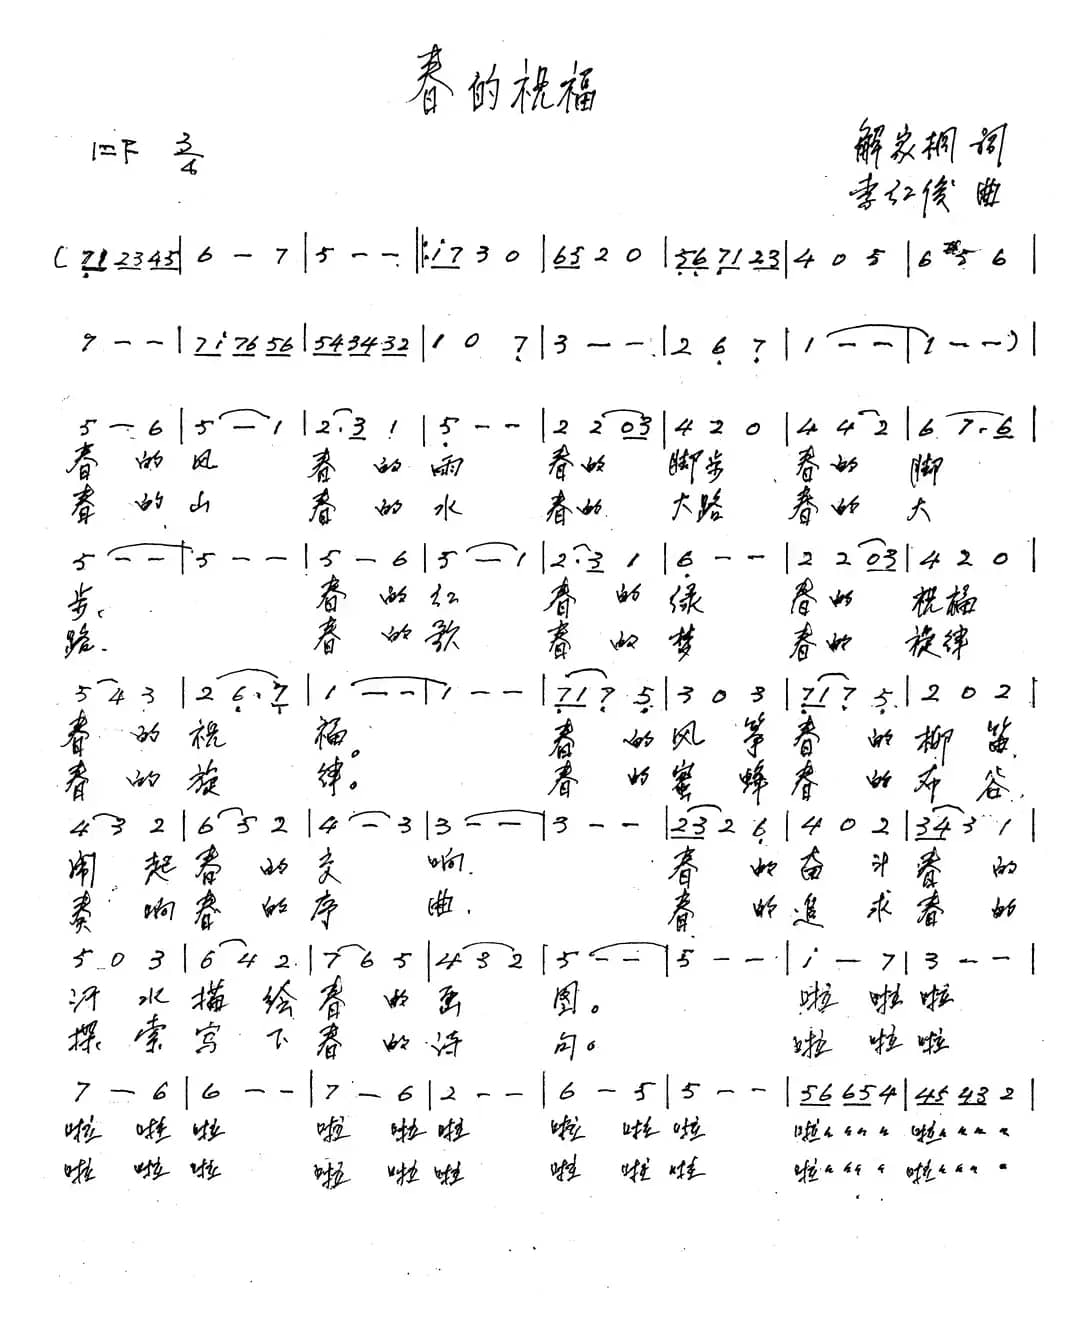 春的祝福
1=F 3/4
解家桐 词
李红俊 曲
( 71 23 45 | 6 — 7 | 5 — — |: i7 3 0 | 65 2 0 | 56 71 23 | 4 0 5 | 6 5 6 |
7 — — | 7i 76 56 | 54 34 32 | 1 0 7 | 3 — — | 2 6 7 | 1 — — | 1 — — ) |
5 — 6 | 5 — 1 | 2. 3 1 | 5 — — | 2 2 03 | 4 2 0 | 4 4 2 | 6 7. 6 |
春 的 风 春 的 雨 春的 脚步 春的 脚
春 的 山 春 的 水 春的 大路 春的 大
5 — — | 5 — — | 5 — 6 | 5 — 1 | 2. 3 1 | 6 — — | 2 2 03 | 4 2 0 |
步、 春 的 红 春 的 绿 春的 祝福
路. 春 的 歌 春 的 梦 春的 旋律
5 4 3 | 2 6. 7 | 1 — — | 1 — — | 71 7 5 | 3 0 3 | 71 7 5 | 2 0 2 |
春 的 祝 福。 春 的 风 筝 春 的 柳 笛、
春 的 旋 律。 春 的 蜜 蜂 春 的 布 谷,
4 3 2 | 6 5 2 | 4 — 3 | 3 — — | 3 — — | 23 2 6 | 4 0 2 | 34 3 1 |
闹 起 春 的 交 响. 春 的 奋 斗 春 的
奏 响 春 的 序 曲. 春 的 追 求 春 的
5 0 3 | 6 4 2 | 7 6 5 | 4 3 2 | 5 — — | 5 — — | i — 7 | 3 — — |
汗 水 描 绘 春 的 画 图。 啦 啦 啦
探 索 写 下 春 的 诗 句。 啦 啦 啦
7 — 6 | 6 — — | 7 — 6 | 2 — — | 6 — 5 | 5 — — | 56 65 4 | 45 43 2 |
啦 啦 啦 啦 啦 啦 啦 啦 啦 啦〃〃〃〃 啦〃〃〃〃
啦 啦 啦 啦 啦 啦 啦 啦 啦 啦〃〃〃〃 啦〃〃〃〃